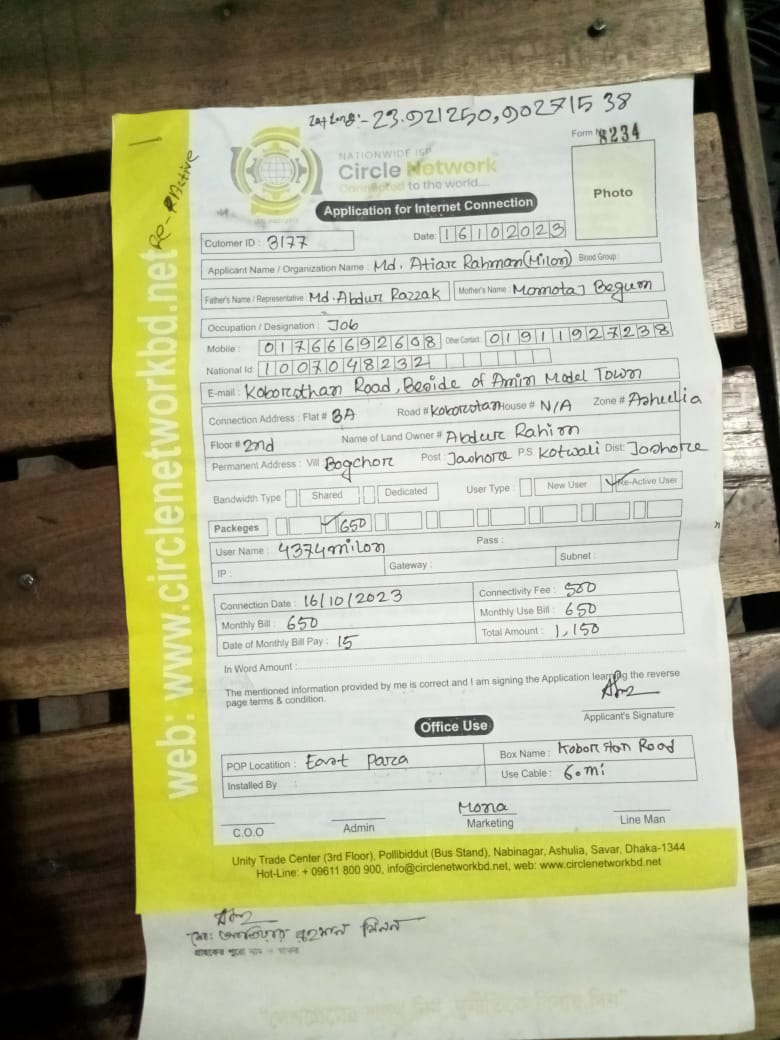 Lat Long:- 23.921250, 90271538
Form No 8234
Re-Active
NATIONWIDE ISP
Circle Network
Connected to the world....
Photo
Application for Internet Connection
Cutomer ID : 3177 Date: 16102023
Applicant Name / Organization Name : Md. Atiar Rahman (Milon) Blood Group :
Father's Name / Representative Md. Abdur Razzak Mother's Name : Momotaj Begum
Occupation / Designation : Job
Mobile : 01766692608 Other Contact 01911927238
National Id: 1007048232
E-mail : Koborothan Road, Beside of Amin Model Town
Connection Address : Flat # 3A Road # Koborotan House # N/A Zone # Ashulia
Floor # 2nd Name of Land Owner # Abdur Rahim
Permanent Address : Vill Bogchor Post : Jashore P.S Kotwali Dist: Jashore
Bandwidth Type Shared Dedicated User Type : New User ✓ Re-Active User
Packeges ✓ 650
User Name : 4374milon Pass :
IP : Gateway : Subnet :
Connection Date : 16/10/2023 Connectivity Fee : 500
Monthly Bill : 650 Monthly Use Bill : 650
Date of Monthly Bill Pay : 15 Total Amount : 1,150
In Word Amount :
The mentioned information provided by me is correct and I am signing the Application learning the reverse
page terms & condition.
Applicant's Signature
Office Use
POP Locatition : East Para Box Name : Kobor sthan Road
Installed By Use Cable : 60 mi
Mona
C.O.O Admin Marketing Line Man
Unity Trade Center (3rd Floor), Pollibiddut (Bus Stand), Nabinagar, Ashulia, Savar, Dhaka-1344
Hot-Line: + 09611 800 900, info@circlenetworkbd.net, web: www.circlenetworkbd.net
web: www.circlenetworkbd.net
মোঃ আতিয়ার রহমান মিলন
গ্রাহকের পুরো নাম ও স্বাক্ষর